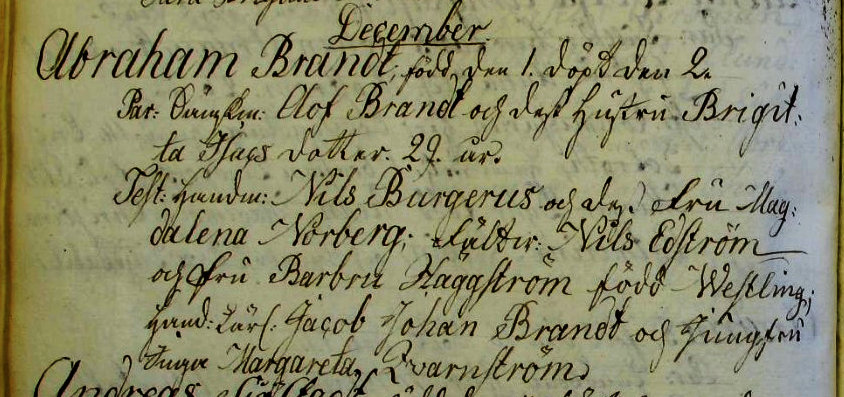 December
Abraham Brandt, född den 1. döpt den 2.
Par: Olof Brandt och dess Hustru Brigit:
ta Isacs dotter. 29. år.
Test: Handm: Nils Burgerus och dess Fru Mag:
dalena Norberg; Fältw: Nils Edström
och fru Barbru Häggström född Westling;
Hand: Jacob Johan Brandt och Jungfru
Margareta Qvarnström.
Andreas